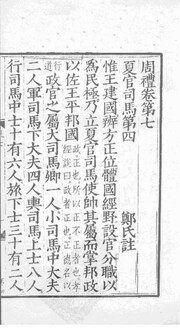 周禮卷第七
夏官司馬第四　鄭氏註
惟王建國辨方正位體國經野設官分職以
爲民極乃立夏官司馬使帥其屬而掌邦政
以佐王平邦國政正也政所以正不正者也孝經說曰政者正也正德名以
行道政官之屬大司馬卿一人小司馬中大夫
二人軍司馬下大夫四人輿司馬上士八人
行司馬中士十有六人旅下士三十有二人